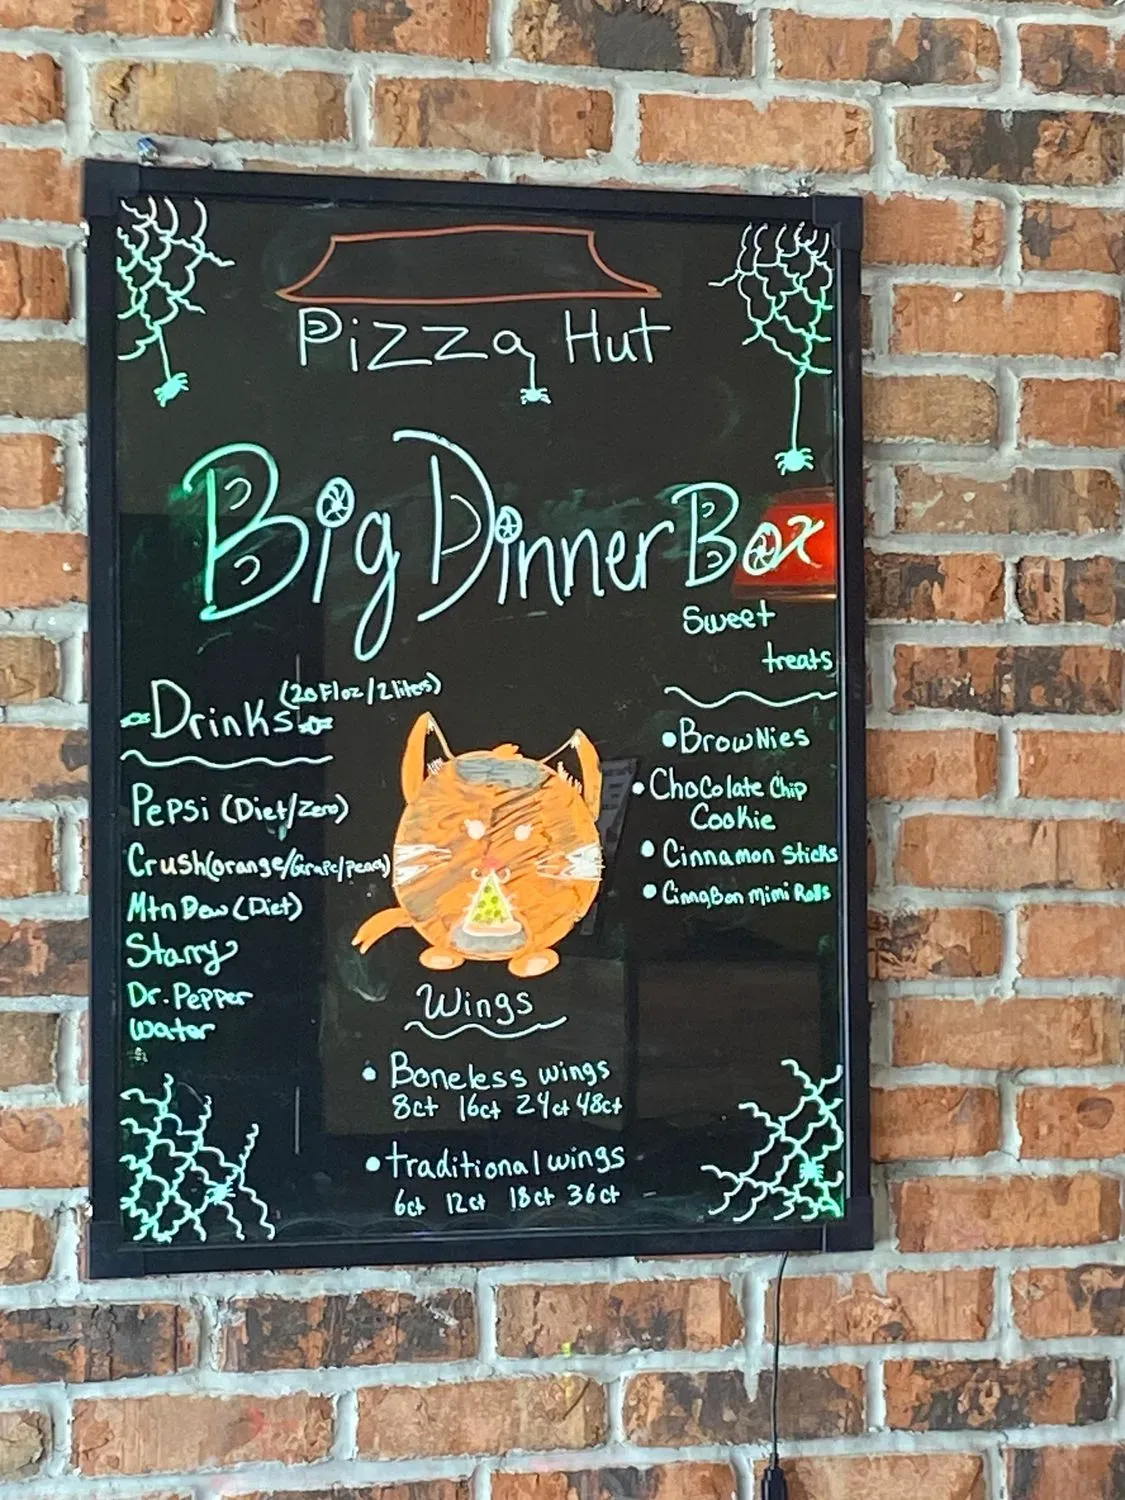 Pizza Hut
Big Dinner Box
Drinks (20 Fl oz/2 liters)
Pepsi (Diet/Zero)
Crush (orange/Grape/peach)
Mtn Dew (Diet)
Starry
Dr. Pepper
water
Sweet
treats
• BrowNies
• ChoColate Chip
Cookie
• Cinnamon Sticks
• CinnaBon mimi Rolls
Wings
• Boneless wings
8ct 16ct 24ct 48ct
• traditional wings
6ct 12ct 18ct 36ct